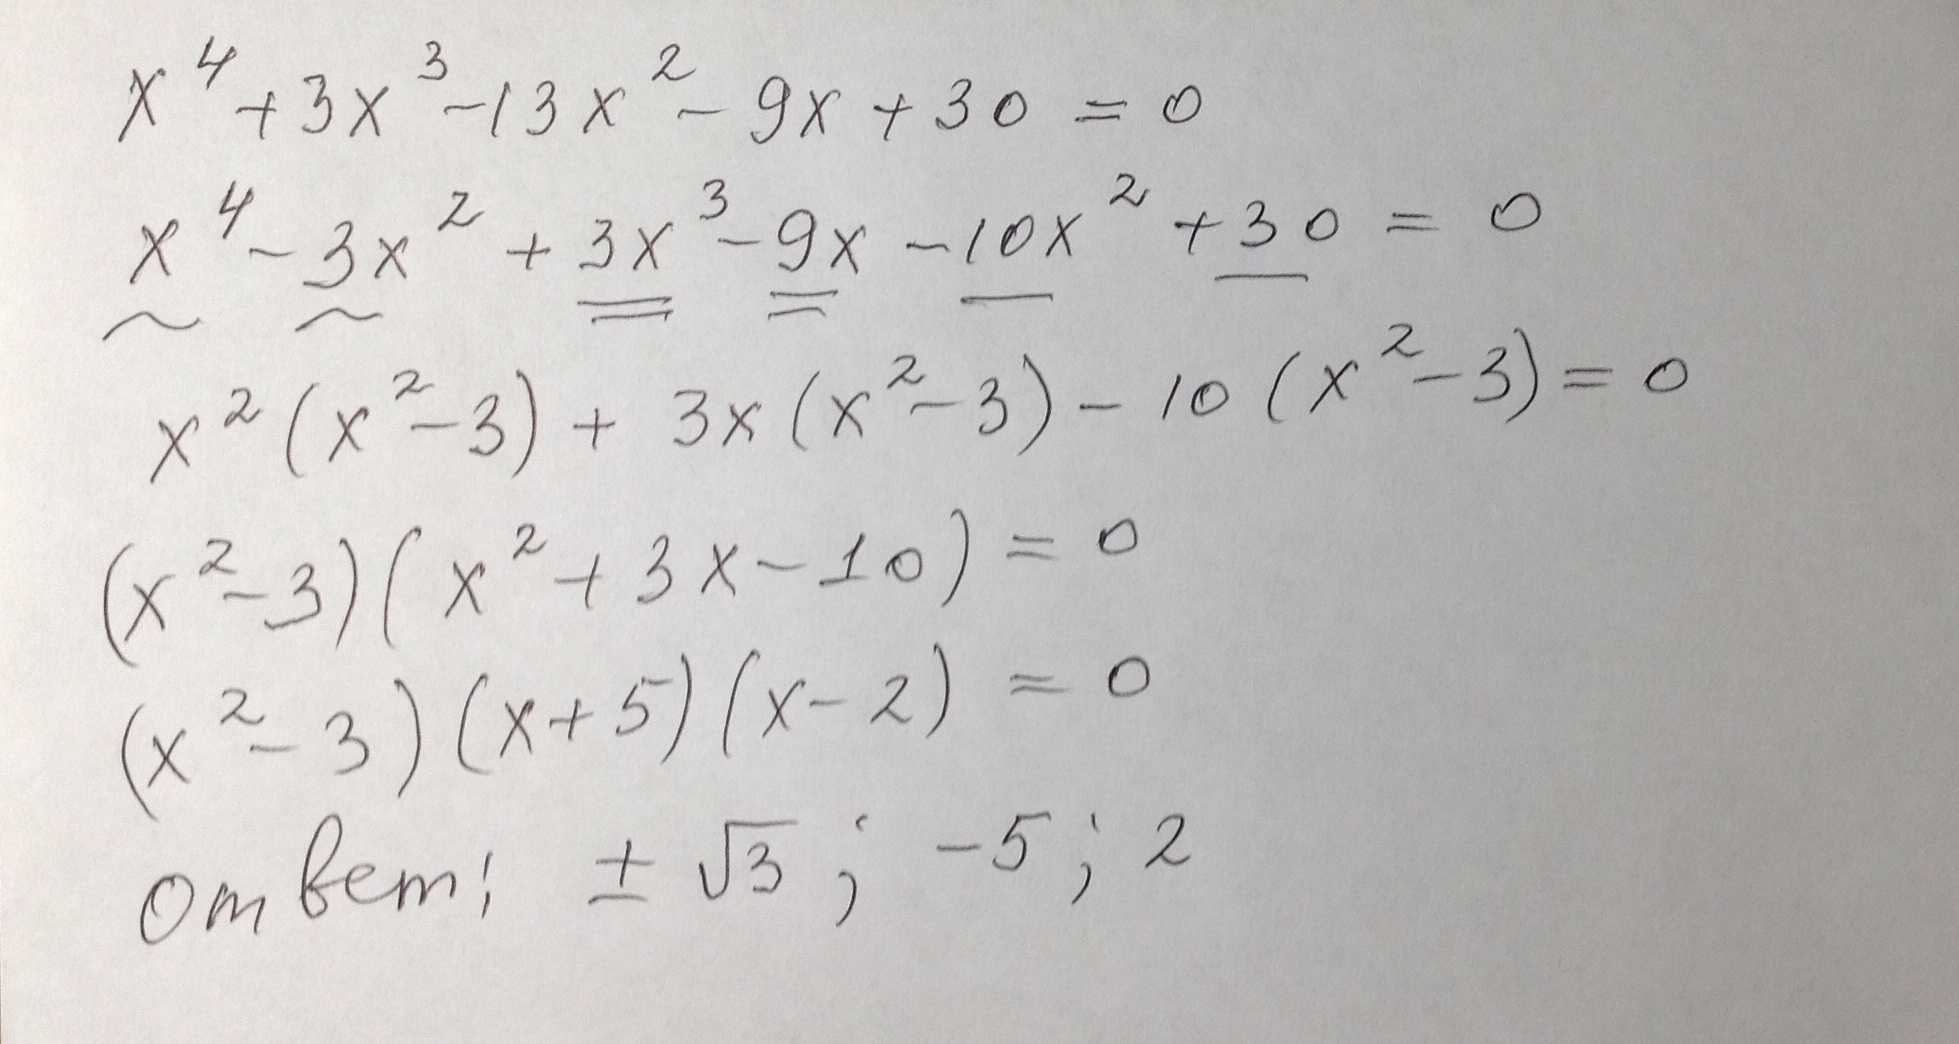 x⁴+3x³-13x²-9x+30=0
x⁴-3x²+3x³-9x-10x²+30=0
x²(x²-3)+3x(x²-3)-10(x²-3)=0
(x²-3)(x²+3x-10)=0
(x²-3)(x+5)(x-2)=0
ответ: ±√3; -5; 2